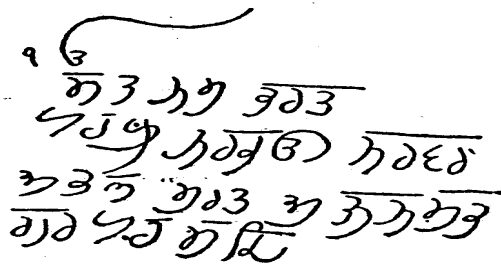 ੴ
ਸਤ ਨਮ ਕਰਤ
ਪਰਖ ਨਰਭੳ ਨਰਵਰ
ਅਕਲ ਮਰਤ
ਗਰ ਪਰ ਸਦ